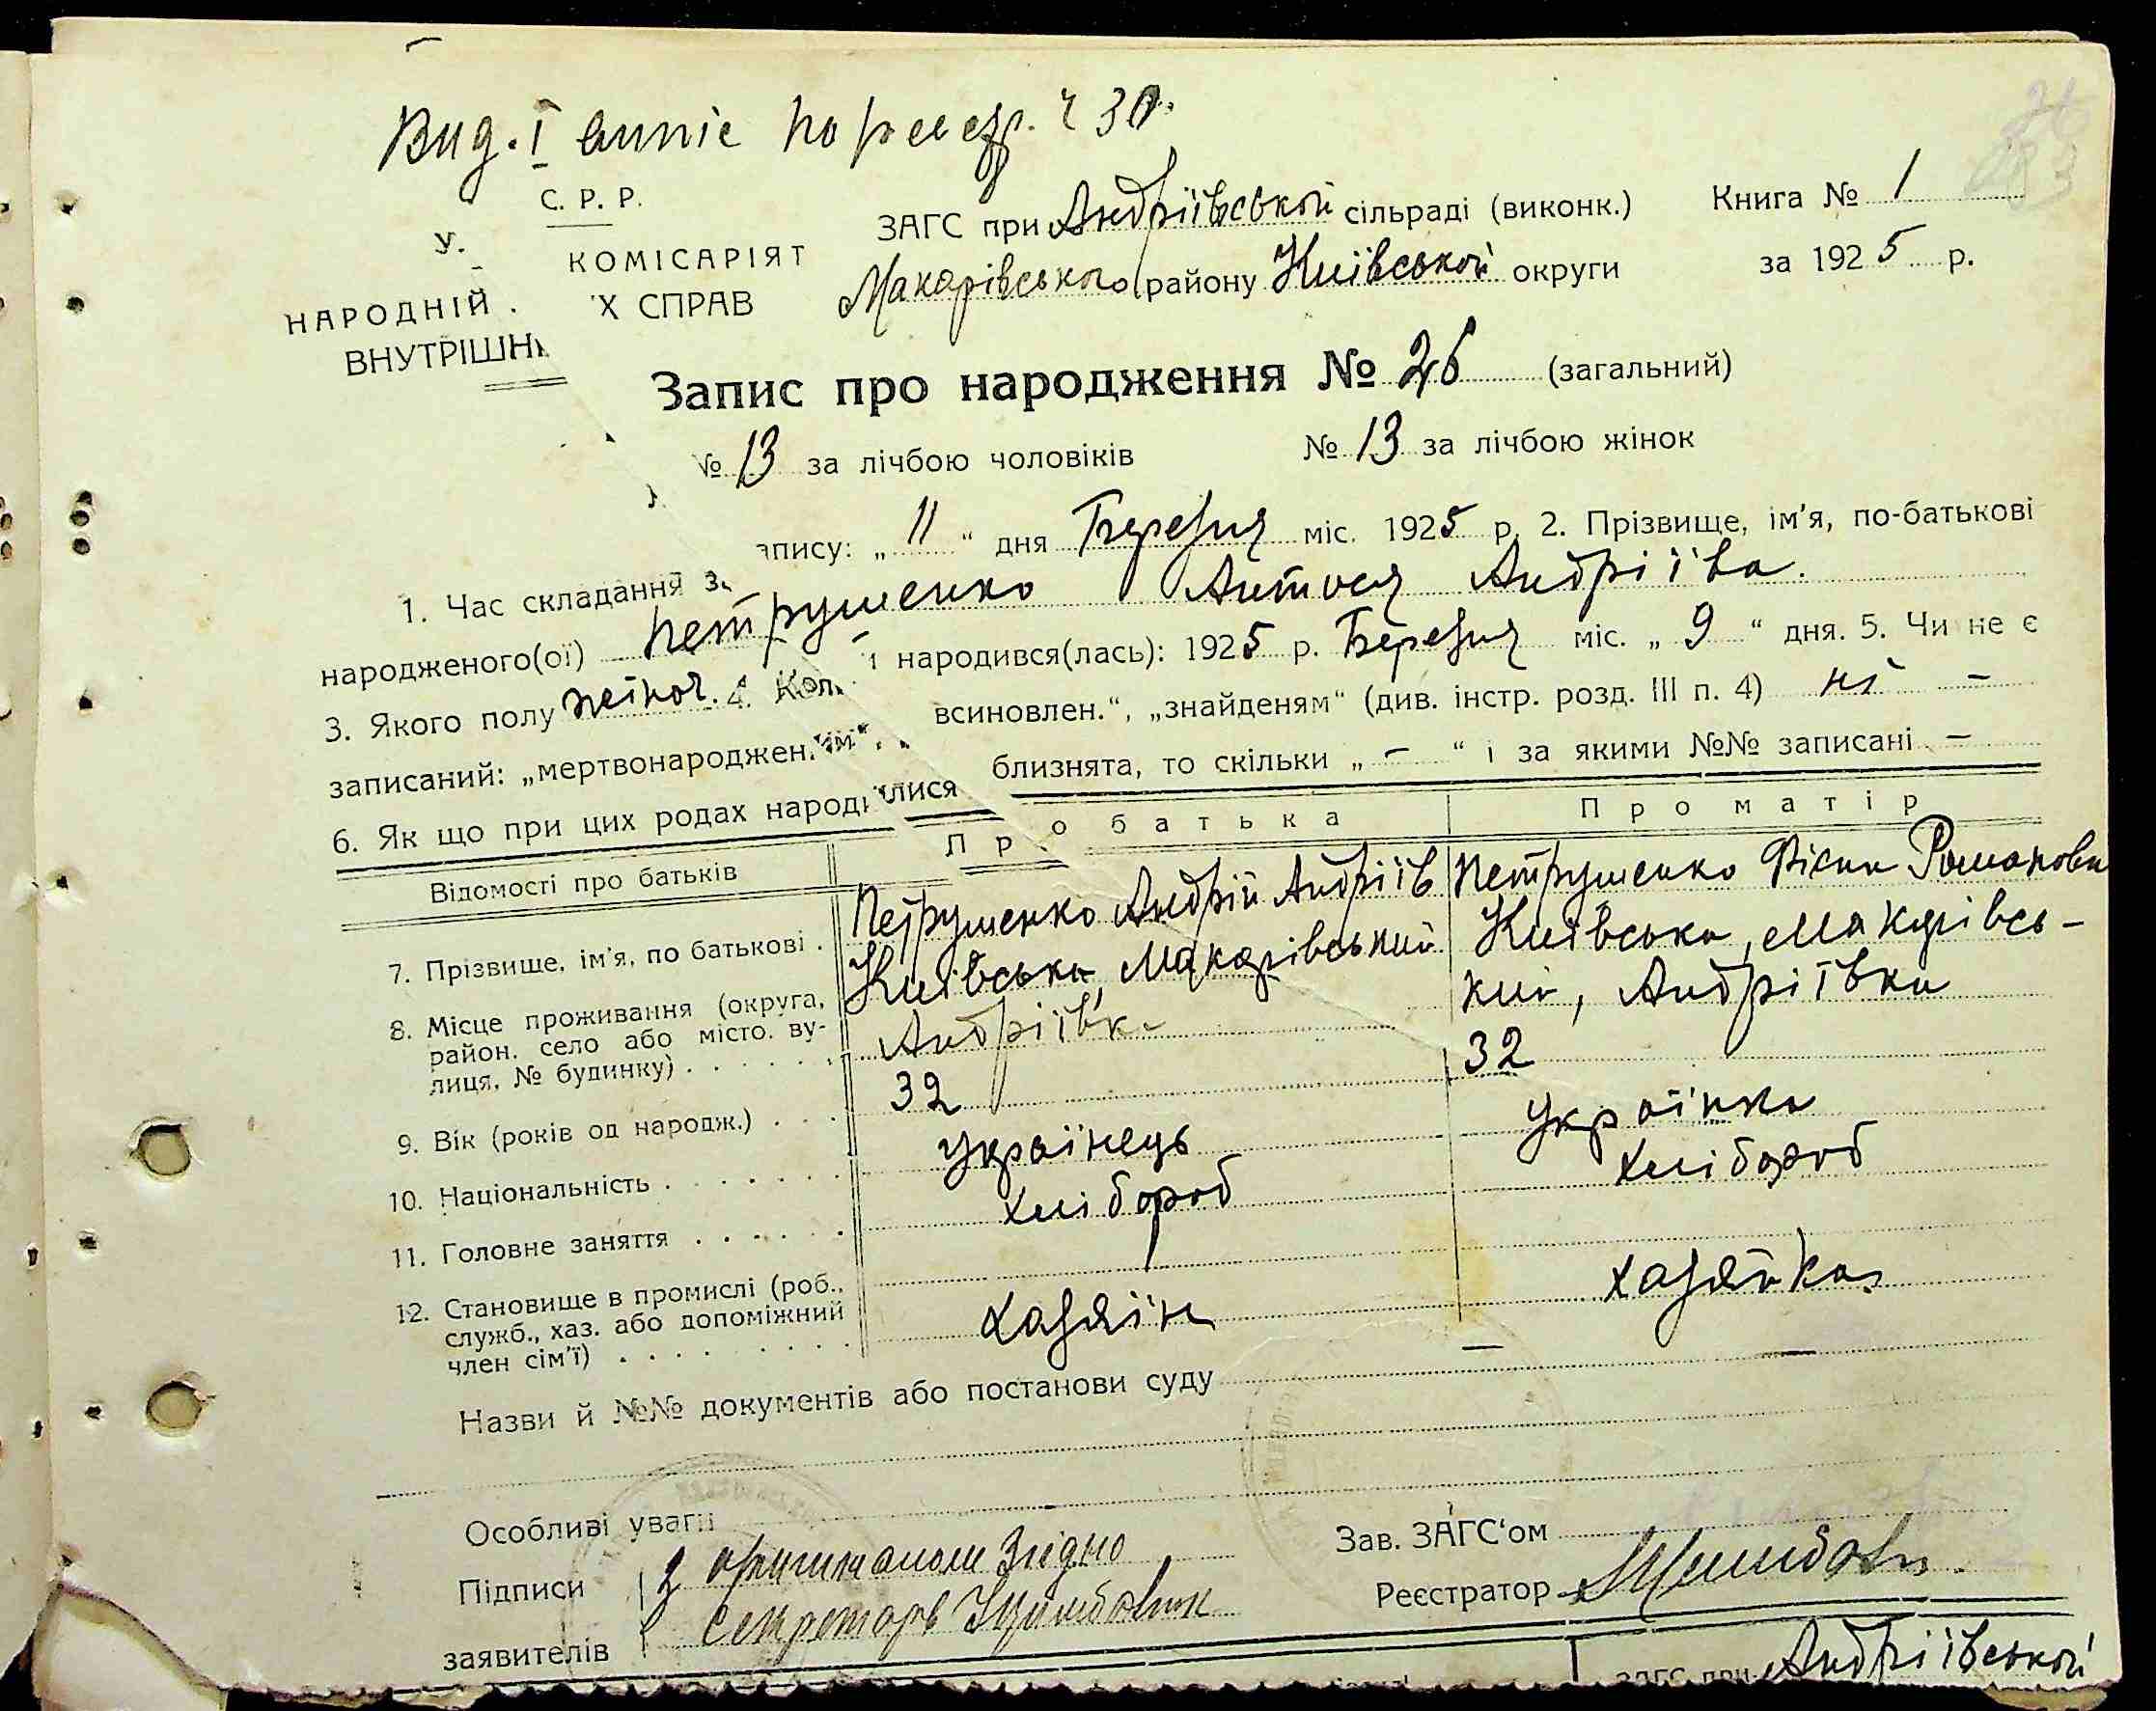 Вид. I випис по реєстр. ч 30
С. Р. Р.
У.
НАРОДНІЙ КОМІСАРІЯТ
ВНУТРІШН Х СПРАВ
ЗАГС при Андріївській сільраді (виконк.)
Макарівського району Київської округи
Книга № 1
за 1925 р.
Запис про народження № 26 (загальний)
№ 13 за лічбою чоловіків № 13 за лічбою жінок
1. Час складання за апису: „ 11 “ дня Березня міс. 1925 р. 2. Прізвище, ім'я, по-батькові
народженого(ої) Петрушенко Антося Андріїва.
3. Якого полу жіноч. 4. Кол и народився(лась): 1925 р. Березня міс. „ 9 “ дня. 5. Чи не є
записаний: „мертвонароджен. им“, всиновлен.“, „знайденям“ (див. інстр. розд. III п. 4) ні –
6. Як що при цих родах народилися близнята, то скільки „ – “ і за якими №№ записані –
Відомості про батьків Про батька Про матір
7. Прізвище, ім'я, по батькові . Петрушенко Андрій Андріїв Петрушенко Фісна Романовна
8. Місце проживання (округа, район, село або місто, ву-
лиця, № будинку) . . . . . . Київська, Макарівський Андріївка Київська, Макарівсь-
кий, Андріївка
9. Вік (років од народж.) . . . 32 32
10. Національність . . . . . . . Українець Українка
11. Головне заняття . . . . . . хлібороб хлібороб
12. Становище в промислі (роб.,
служб., хаз. або допоміжний
член сім'ї) . . . . . . . . . хазяїн хазяйка
Назви й №№ документів або постанови суду – –
Особливі уваги
Підписи
заявителів
З оригіналом згідно
секретарь
Зав. ЗАГС'ом
Реєстратор
ЗАГС при Андріївській